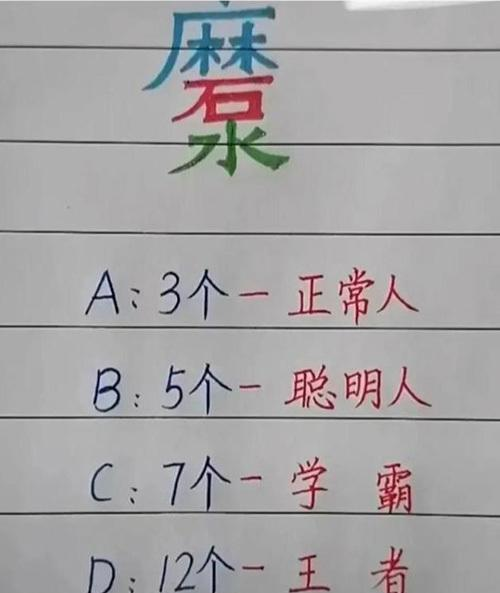 磨
水
A：3个一正常人
B：5个一聪明人
C：7个一学 霸
D：12个一王 者